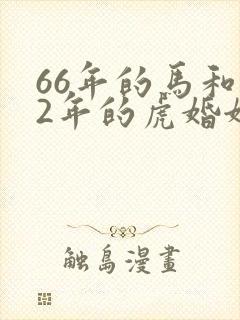 66年的馬和
2年的虎婚
触島漫畫